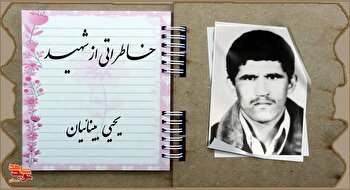 خاطراتی از شهید
یحیی بینائیان